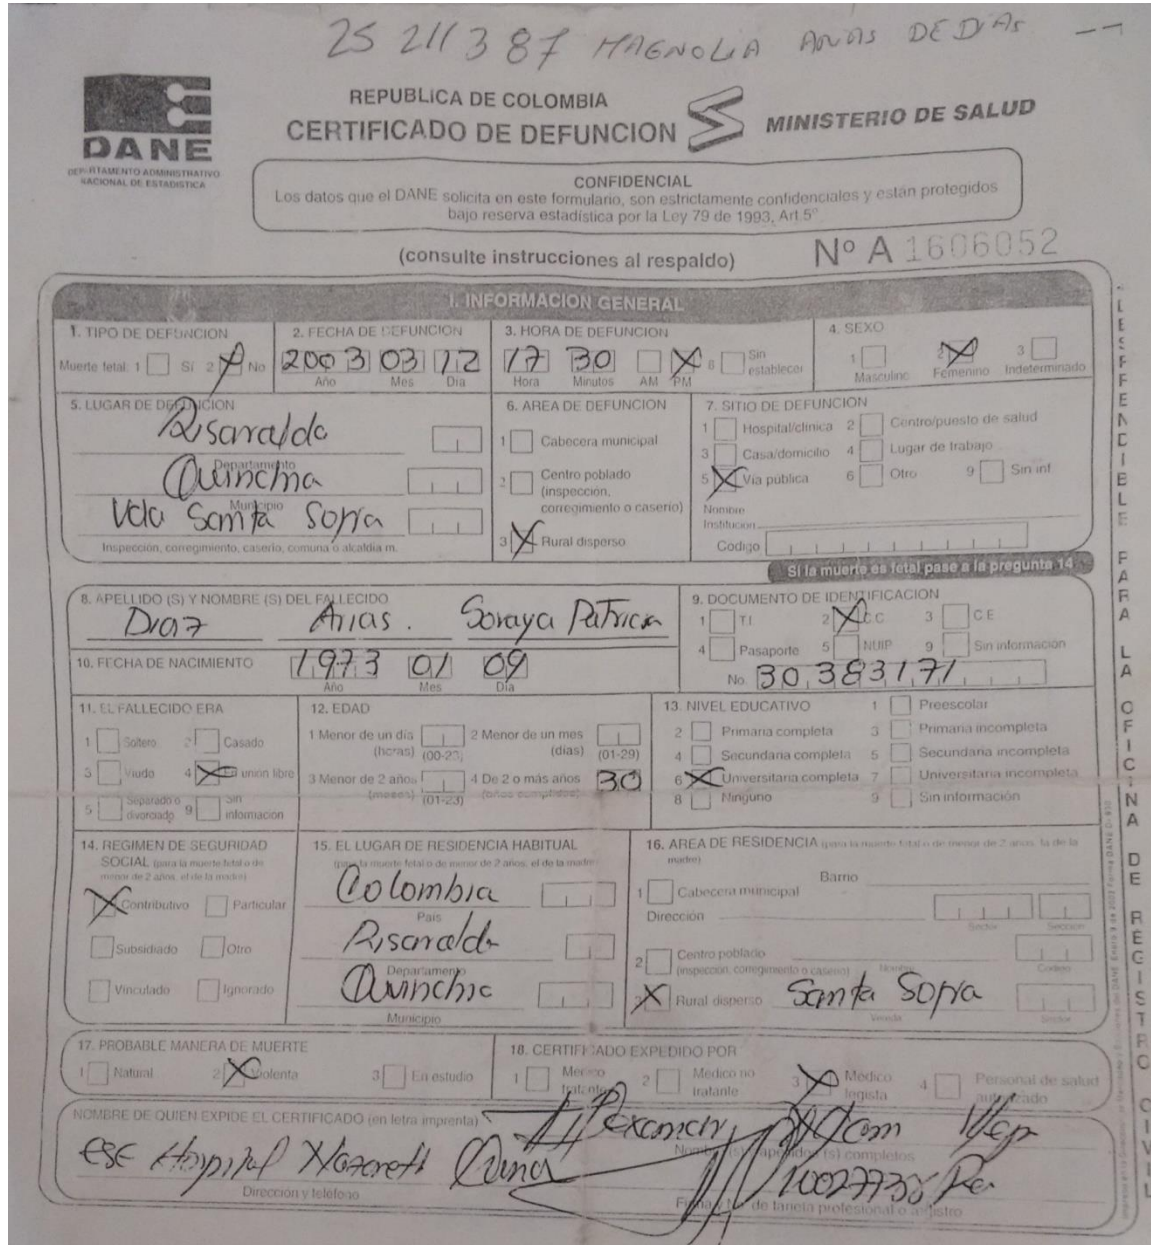 25 211 387 MAGNOLIA ARIAS DE DIAS --
DANE
DEPARTAMENTO ADMINISTRATIVO
NACIONAL DE ESTADISTICA
REPUBLICA DE COLOMBIA
CERTIFICADO DE DEFUNCION
MINISTERIO DE SALUD
CONFIDENCIAL
Los datos que el DANE solicita en este formulario, son estrictamente confidenciales y están protegidos
bajo reserva estadística por la Ley 79 de 1993, Art.5°
(consulte instrucciones al respaldo)
Nº A 1606052
I. INFORMACION GENERAL
1. TIPO DE DEFUNCION
Muerte fetal: 1 Sí 2 X No
2. FECHA DE DEFUNCION
2003 03 12
Año Mes Día
3. HORA DE DEFUNCION
17 30 X 8 Sin establecer
Hora Minutos AM PM
4. SEXO
1 2 X 3
Masculino Femenino Indeterminado
5. LUGAR DE DEFUNCION
Risaralda
Departamento
Quinchia
Municipio
Vda Santa Sofia
Inspección, corregimiento, caserío, comuna o alcaldía m.
6. AREA DE DEFUNCION
1 Cabecera municipal
2 Centro poblado
(inspección,
corregimiento o caserío)
3 X Rural disperso
7. SITIO DE DEFUNCION
1 Hospital/clínica 2 Centro/puesto de salud
3 Casa/domicilio 4 Lugar de trabajo
5 X Vía pública 6 Otro 9 Sin inf
Nombre
Institución
Codigo
Si la muerte es fetal pase a la pregunta 14
8. APELLIDO (S) Y NOMBRE (S) DEL FALLECIDO
Diaz Arias. Soraya Patricia
9. DOCUMENTO DE IDENTIFICACION
1 TI 2 X CC 3 CE
4 Pasaporte 5 NUIP 9 Sin información
No. 30,383,171
10. FECHA DE NACIMIENTO
1973 01 09
Año Mes Día
11. EL FALLECIDO ERA
1 Soltero 2 Casado
3 Viudo 4 X En union libre
5 Separado o divorciado 9 Sin informacion
12. EDAD
1 Menor de un día (horas) (00-23) 2 Menor de un mes (días) (01-29)
3 Menor de 2 años (meses) (01-23) 4 De 2 o más años (años cumplidos) 30
13. NIVEL EDUCATIVO 1 Preescolar
2 Primaria completa 3 Primaria incompleta
4 Secundaria completa 5 Secundaria incompleta
6 X Universitaria completa 7 Universitaria incompleta
8 Ninguno 9 Sin información
14. REGIMEN DE SEGURIDAD
SOCIAL (para la muerte fetal o de
menor de 2 años, el de la madre)
X Contributivo Particular
Subsidiado Otro
Vinculado Ignorado
15. EL LUGAR DE RESIDENCIA HABITUAL
(para la muerte fetal o de menor de 2 años, el de la madre)
Colombia
País
Risaralda
Departamento
Quinchia
Municipio
16. AREA DE RESIDENCIA (para la muerte fetal o de menor de 2 años, la de la
madre)
1 Cabecera municipal Barrio
Dirección
Sector Sección
2 Centro poblado
(inspección, corregimiento o caserío) Nombre Codigo
3 X Rural disperso Santa Sofia
Vereda Sector
17. PROBABLE MANERA DE MUERTE
1 Natural 2 X Violenta 3 En estudio
18. CERTIFICADO EXPEDIDO POR
1 Medico tratante 2 Medico no tratante 3 X Medico legista 4 Personal de salud autorizado
NOMBRE DE QUIEN EXPIDE EL CERTIFICADO (en letra imprenta)
Nombre (s) y apellidos (s) completos
ESE Hospital Nazareth
Dirección y teléfono
Firma y No. de tarjeta profesional o registro
DESPRENDIBLE PARA LA OFICINA DE REGISTRO CIVIL